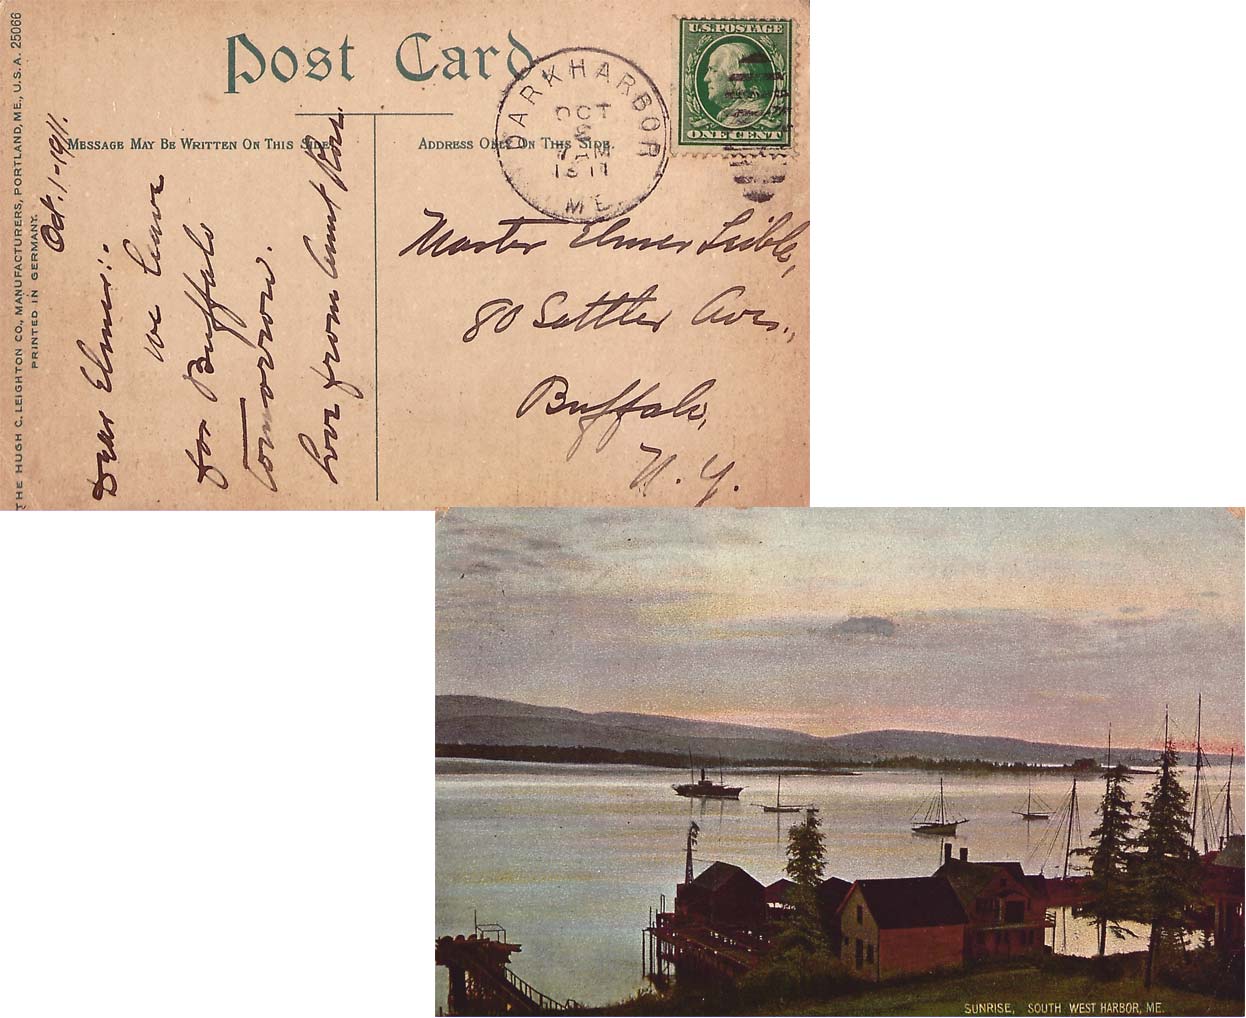 THE HUGH C. LEIGHTON CO., MANUFACTURERS, PORTLAND, ME., U.S.A. 25066
PRINTED IN GERMANY.
Post Card
MESSAGE MAY BE WRITTEN ON THIS SIDE.
ADDRESS ONLY ON THIS SIDE.
DARK HARBOR
OCT
7 AM
1911
ME.
U.S. POSTAGE
ONE CENT
Oct. 1-1911.
Dear Elmer:-
We leave
for Buffalo
tomorrow.
Love from Aunt
Master Elmer
80 Sattler Ave.,
Buffalo,
N.Y.
SUNRISE, SOUTH WEST HARBOR, ME.